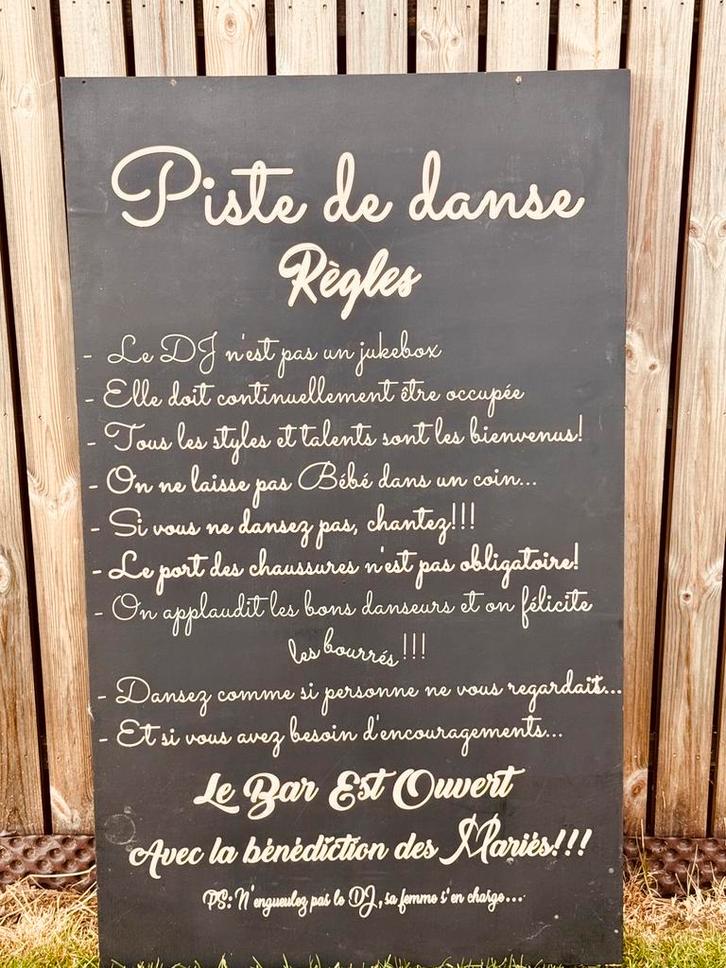 Piste de danse
Règles
- Le DJ n'est pas un jukebox
- Elle doit continuellement être occupée
- Tous les styles et talents sont les bienvenus!
- On ne laisse pas Bébé dans un coin...
- Si vous ne dansez pas, chantez!!!
- Le port des chaussures n'est pas obligatoire!
- On applaudit les bons danseurs et on félicite
les bourrés !!!
- Dansez comme si personne ne vous regardait...
- Et si vous avez besoin d'encouragements...
Le Bar Est Ouvert
Avec la bénédiction des Mariés!!!
PS: N'engueulez pas le DJ, sa femme s'en charge...